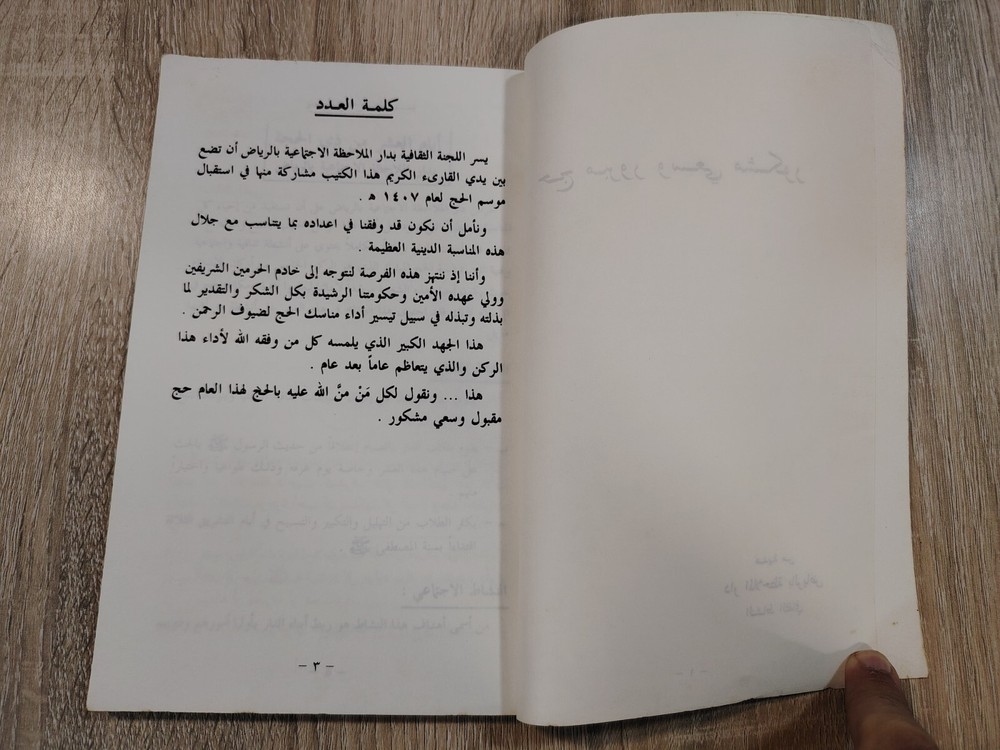 كلمة العدد
يسر اللجنة الثقافية بدار الملاحظة الاجتماعية بالرياض أن تضع
بين يدي القارىء الكريم هذا الكتيب مشاركة منها في استقبال
موسم الحج لعام ١٤٠٧ هـ .
ونأمل أن نكون قد وفقنا في اعداده بما يتناسب مع جلال
هذه المناسبة الدينية العظيمة .
وأننا إذ ننتهز هذه الفرصة لنتوجه إلى خادم الحرمين الشريفين
وولي عهده الأمين وحكومتنا الرشيدة بكل الشكر والتقدير لما
بذلته وتبذله في سبيل تيسير أداء مناسك الحج لضيوف الرحمن .
هذا الجهد الكبير الذي يلمسه كل من وفقه الله لأداء هذا
الركن والذي يتعاظم عاماً بعد عام .
هذا ... ونقول لكل مَنْ منَّ الله عليه بالحج لهذا العام حج
مقبول وسعي مشكور .
– ٣ –